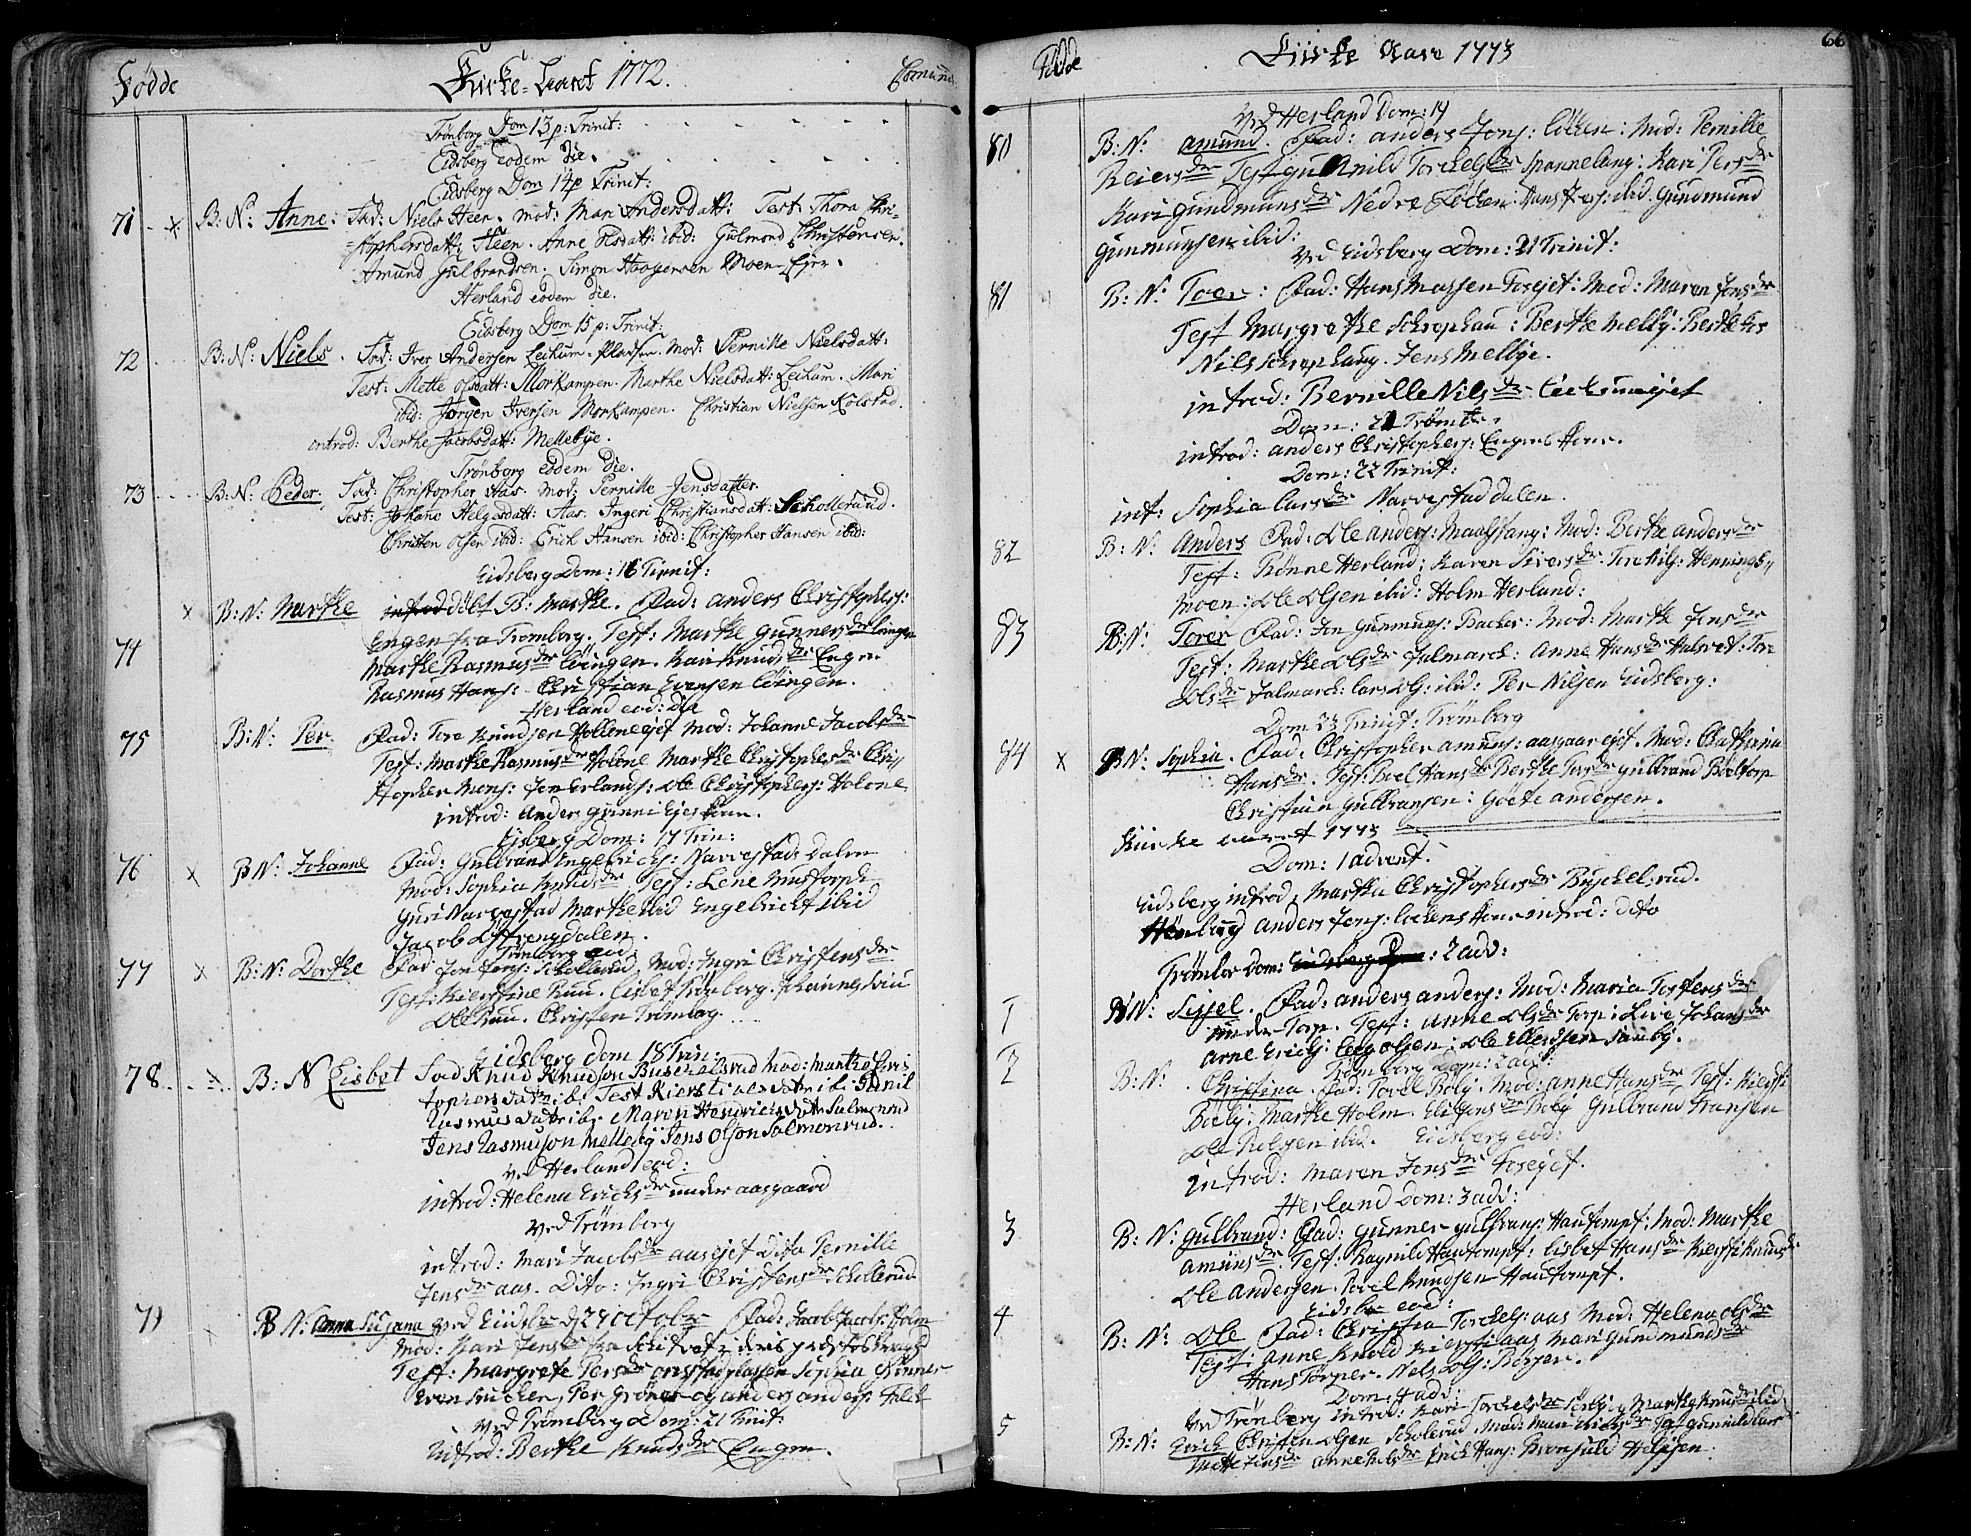 Födde Kirke-Aaret 1772. Comunic:
Trønborg Dom 13 p: Trinit:
Eidsberg eodem die.
Eidsberg Dom 14 p Trinit:
71 B: N: Anne: Fad: Niels Heen. mod: Mari Andersdatt: Test: Thora Chri-
stophersdatt: Heen. Anne Olsdatt: ibid: Gulmond Christensen.
Amund Gulbrandsen. Simon Haagensen Moen-Ejer.
Herland eodem die.
Eidsberg Dom 15 p: Trinit:
72 B: N: Niels. Fad: Iver Andersen Leikum-Pladsen. Mod: Pernille Nielsdatt:
Test: Mette Olsdatt: Morkampen. Marthe Nielsdatt: Leikum. Mari
ibid: Jørgen Iversen Morkampen. Christian Nielsen Kolstad.
introd: Berthe Jacobsdatt: Mellebye.
Trönborg eodem die.
73 B: N: Peder. Fad: Christopher Aas. mod: Pernille Jensdatter.
Test: Johane Helgesdatt: Aas. Ingeri Christiansdatt: Schollerüd.
Christen Olsen ibid: Erich Hansen ibid: Christopher Hansen ibid:
Eidsberg Dom: 16 Trinit:
74 B: N: Marthe introd döbt B: Marthe. Fad: anders Christophers:
Engen fra Trømborg. Test: Marthe Gunners dr
Marthe Rasmus dr Löingen. Kari Knuds dr Engen
Rasmus Hans: Christian Evensen Löingen.
Herland eod: die
75 B: N: Per Fad: Tore Knudsen Holleneejet Mod: Johanne Jacobs dr
Test: Marthe Rasmus dr Holone Marthe Christophers dr Chri//
stopher Mons: Jon Erlands: Ole Christophers: Holone
introd: anders gunni Ejes Kone.
Eisberg Dom: 17 Trin:
76 B N: Johanne Fad: Gulbrand Engebrichs: Narvestad: dalen
Mod: Sophia Knuds dr Test: Lene Mustorph
Guri Narvestad Marthe ibid Engebricht ibid
Jacob
Trønborg eod:
77 B: N: Dorthe Fad Jon Jens: Schollerud Mod: Ingri Christens dr
Test: Kierstine Ruu. Lisbet Trönborg. Johannes
Ole Ruu. Christen Trömborg.
Eidsberg dom 18 Trin:
78 B: N Lisbet Fad Knud Knudson Buschelsrud Mod: Marthe Chris
tophersdatr: ib: Test Kiersti
Rasmusdatr ibi Maren Hendrichsdatr Salmonrud
Jens Rasmuson Mellebÿ Jens Olson Salmonrud.
Ved Herland eod:
introd: Helena Erichs dr under aasgaard
Ved Trömborg
introd: Mari Jacobs dr aasejet Dito Pernille
Jens dr aas. Dito: Ingri Christens dr Schollerud
79 B N: Anna Susanna Ved Eidsber d 29 octobr Fad: Jacob Jacobs: Holm
Mod: Kari Jens dr fra Schiptvet
Test: Margrete Pers dr Sophia Grönner
Even Per Gröner og anders anders: Falch
Ved Trömberg Dom: 21 Trinit:
Introd: Berthe Knuds dr Engen.
Födde Kirke Aare 1773 66
Ved Herland Dom: 19
80 B: N: Amund. Fad: anders Jons: Löken: Mod: Pernille
Reiers dr Test Gunild Torchels dr Spannelang: Kari Pers dr
Kari gundmuns dr Nedre Löken: Hans ibid. Gundmund
Gunmunsen ibid:
Ved Eidsberg Dom: 21 Trinit:
81 B: N: Toer: Fad: Hans Massen Fosejet: Mod: Maren Jens dr
Test Margrethe Schrephau: Berthe Melby: Berthe
Nils Schrephaug. Jens Melbye.
introd: Bernille Nils dr Leekumejet
Dom: 21 Trömb:
introd: anders Christophers: Engens Kone.
Dom: 22 Trinit:
int: Sophia Lars dr Narvestad dalen.
82 B: N: Anders Fad: Ole anders: Maalstang: Mod: Berthe anders dr
Test: Rönne Herland: Karen Sivers dr. Torchils: Hennings//
Moen: Ole Olsen ibid: Holm Herland:
83 B: N: Torer Fad: Jon gunmuns: Backer: Mod: Marthe Jons dr
Test: Marthe Ols dr Jalmarck: Anne Hans dr Halvet: Tor
Ols dr Jalmarck: Lars Ols: ibid: Per Nilsen Eidsberg:
Dom 23 Trinit: Trömberg
84 B N: Sophia. Fad: Christopher amuns: aasgaar ejet. Mod: Cathrina
Hans dr. Test: Roel Hans dr Berthe Tors dr gulbrand Böeltorp
Christian gulbransen: Göete andersen.
Kircke aaret 1773
Dom: 1 advent:
Eidsberg introd: Marthe Christophers dr Buschelsrud.
anders Jens: Lockens Kone introd: dito
Trömbor Dom: : 2 adv:
1 B N: Sissel. Fad: anders anders: Mod: Maria Tostens dr
under Torp. Test: Anne Ols dr Torp: Live Johans dr
Arne Erichs: Olsen: Ole Ellendsen
Tromborg Dom: 2 adv:
2 B: N: Christina Fad: Povel Boly. Mod: anne Hans dr Test: Kiersti
Boely: Marthe Holm. Boly Gulbrand Fransen
Ole ibid. Eidsberg eod:
introd: Maren Jens dr Fosejet.
Herland Dom: 3 adv:
3 B: N: Gulbrand: Fad: Gunner gulbrans: Hautompt: Mod: Marthe
Amuns dr. Test: Ragnild Hautompt: Lisbet Hans dr Kiersti Knuds dr
Ole Andersen. Povel Knudsen Hautompt.
Eidsber eod:
4 B: N: Ole Fad: Christen Torchels: aas Mod: Helena Ols dr
Test: Anne Knold Kiersti aas Mari Gundmunds dr
Hans Törper. Nels Ols: Börsen.
Dom: 4 adv:
Ved Trönberg introd: Kari Torchels dr Marthe Knuds dr ibid
5 B: N: Erich Christen Olsen Scholerud. Mod: Mari Erichs dr Test gunnild Lars
Mette Jens dr Anne Nils dr Erich Hans: